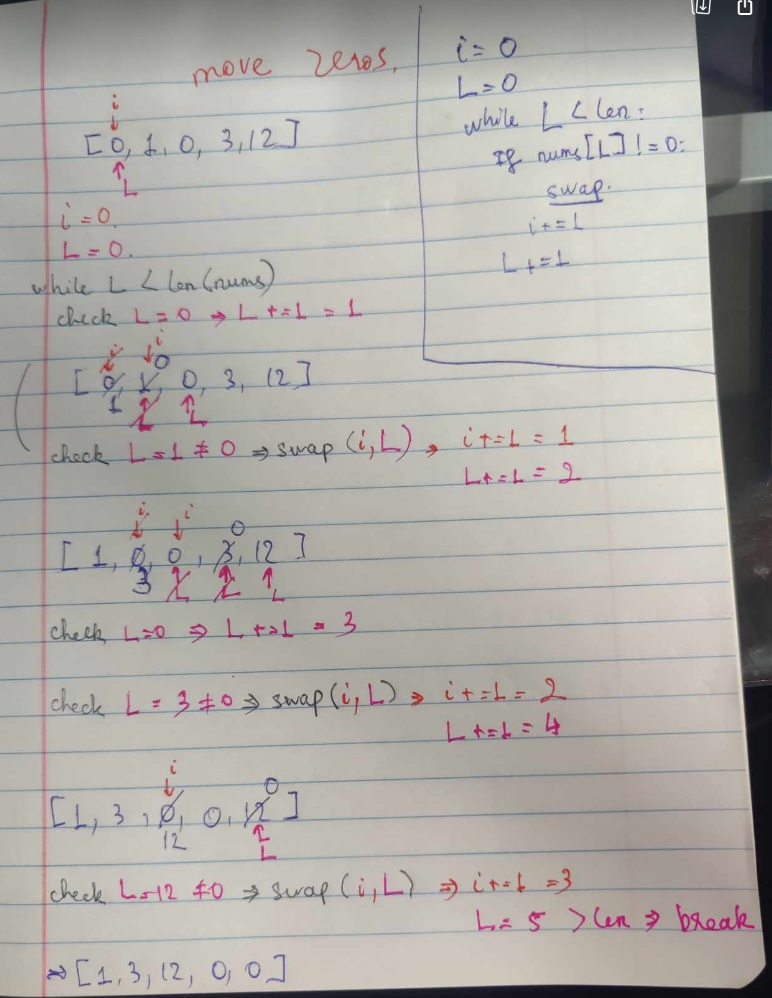 move zeros.
i
[0, 1, 0, 3, 12]
L
i = 0.
L = 0.
while L < len(nums)
check L = 0 ⇒ L += 1 = 1
i i
0
[0, 1, 0, 3, 12]
1 L L
check L = 1 ≠ 0 ⇒ swap (i, L) ⇒ i += 1 = 1
L += 1 = 2
i i
0
[1, 0, 0, 3, 12]
3 L L L
check L=0 ⇒ L += 1 = 3
check L = 3 ≠ 0 ⇒ swap (i, L) ⇒ i += 1 = 2
L += 1 = 4
i
0
[1, 3, 0, 0, 12]
12
L
check L = 12 ≠ 0 ⇒ swap (i, L) ⇒ i += 1 = 3
L = 5 > len ⇒ break
⇒ [1, 3, 12, 0, 0]
i = 0
L = 0
while L < len:
If nums[L] != 0:
swap.
i += 1
L += 1